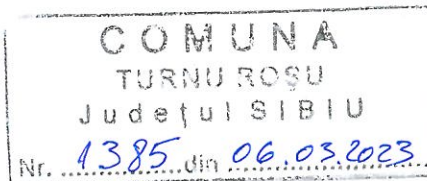 COMUNA
TURNU ROŞU
Judeţul SIBIU
Nr. 1385 din 06.03.2023